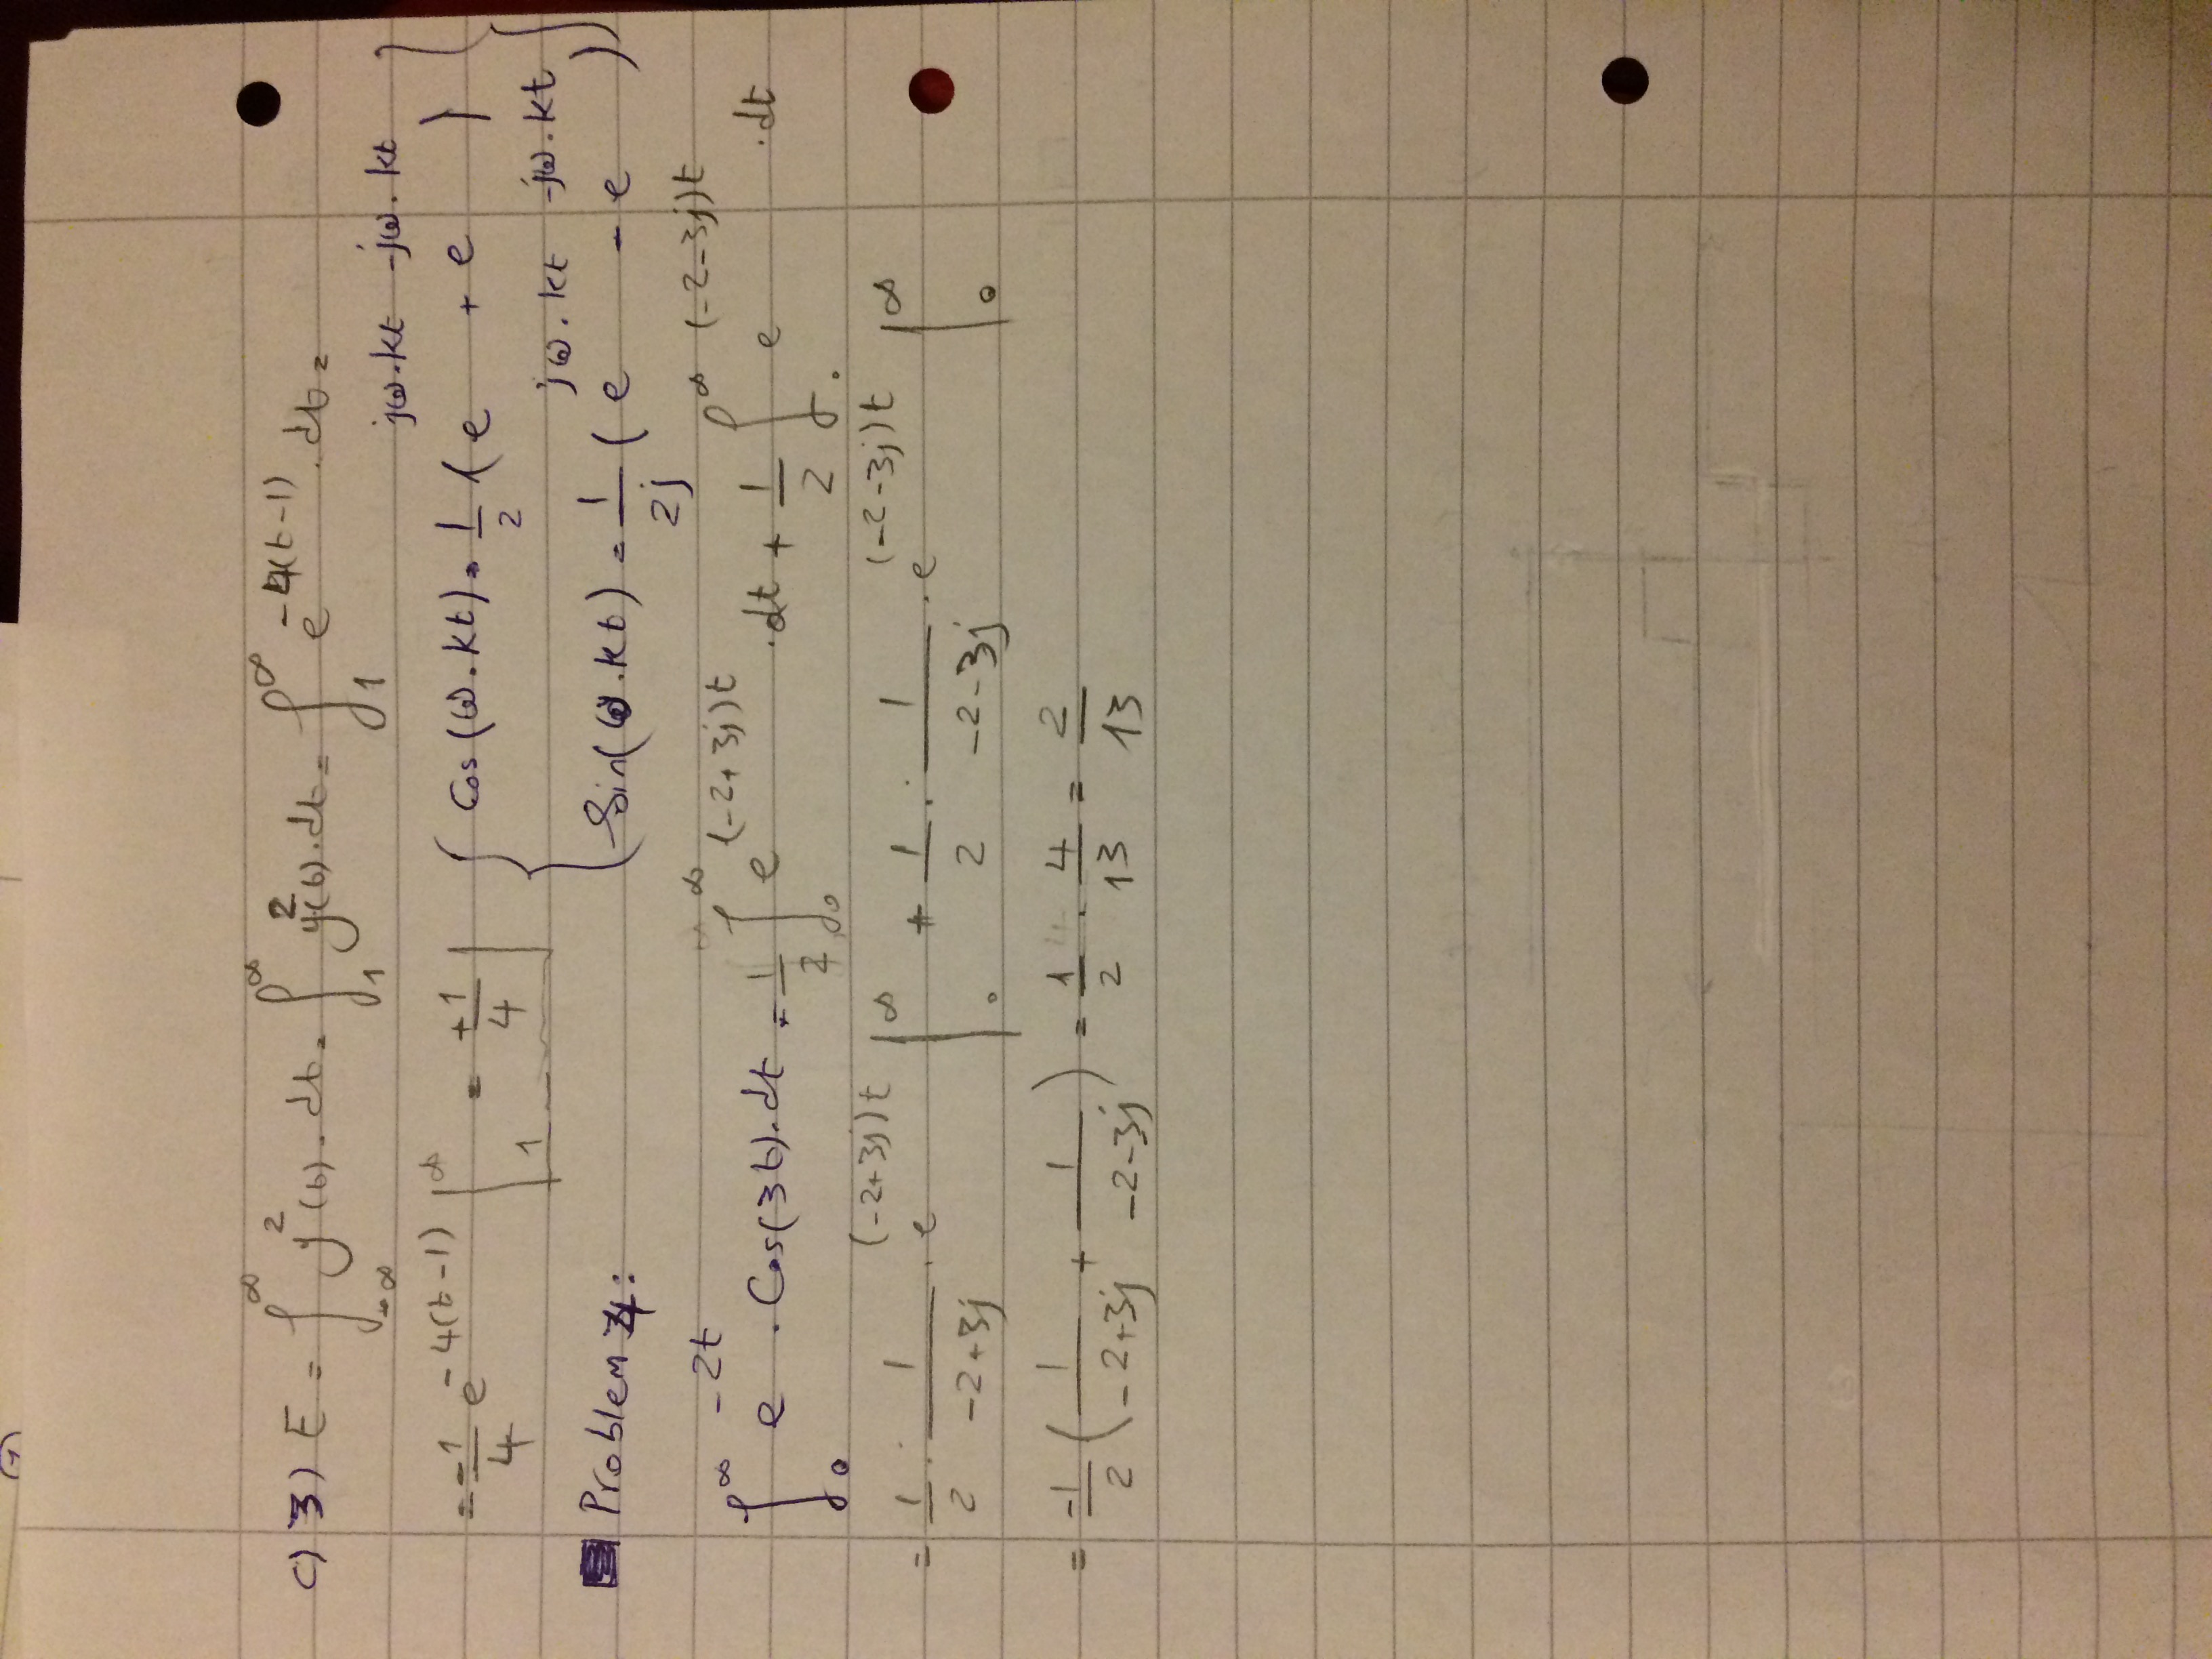 1
c) 3) E = ∫_{-∞}^{∞} y²(t).dt = ∫_{1}^{∞} y²(t).dt = ∫_{1}^{∞} e^{-4(t-1)}.dt =
= -1/4 e^{-4(t-1)} |_{1}^{∞} = +1/4
{ Cos(ω.kt) = 1/2 ( e^{jω.kt} + e^{-jω.kt} )
Sin(ω.kt) = 1/2j ( e^{jω.kt} - e^{-jω.kt} ) }
Problem 4:
∫_{0}^{∞} e^{-2t} . Cos(3t).dt = 1/2 ∫_{0}^{∞} e^{(-2+3j)t} .dt + 1/2 ∫_{0}^{∞} e^{(-2-3j)t} .dt
= 1/2 . 1/(-2+3j) . e^{(-2+3j)t} |_{0}^{∞} + 1/2 . 1/(-2-3j) . e^{(-2-3j)t} |_{0}^{∞}
= -1/2 ( 1/(-2+3j) + 1/(-2-3j) ) = 1/2 . 4/13 = 2/13